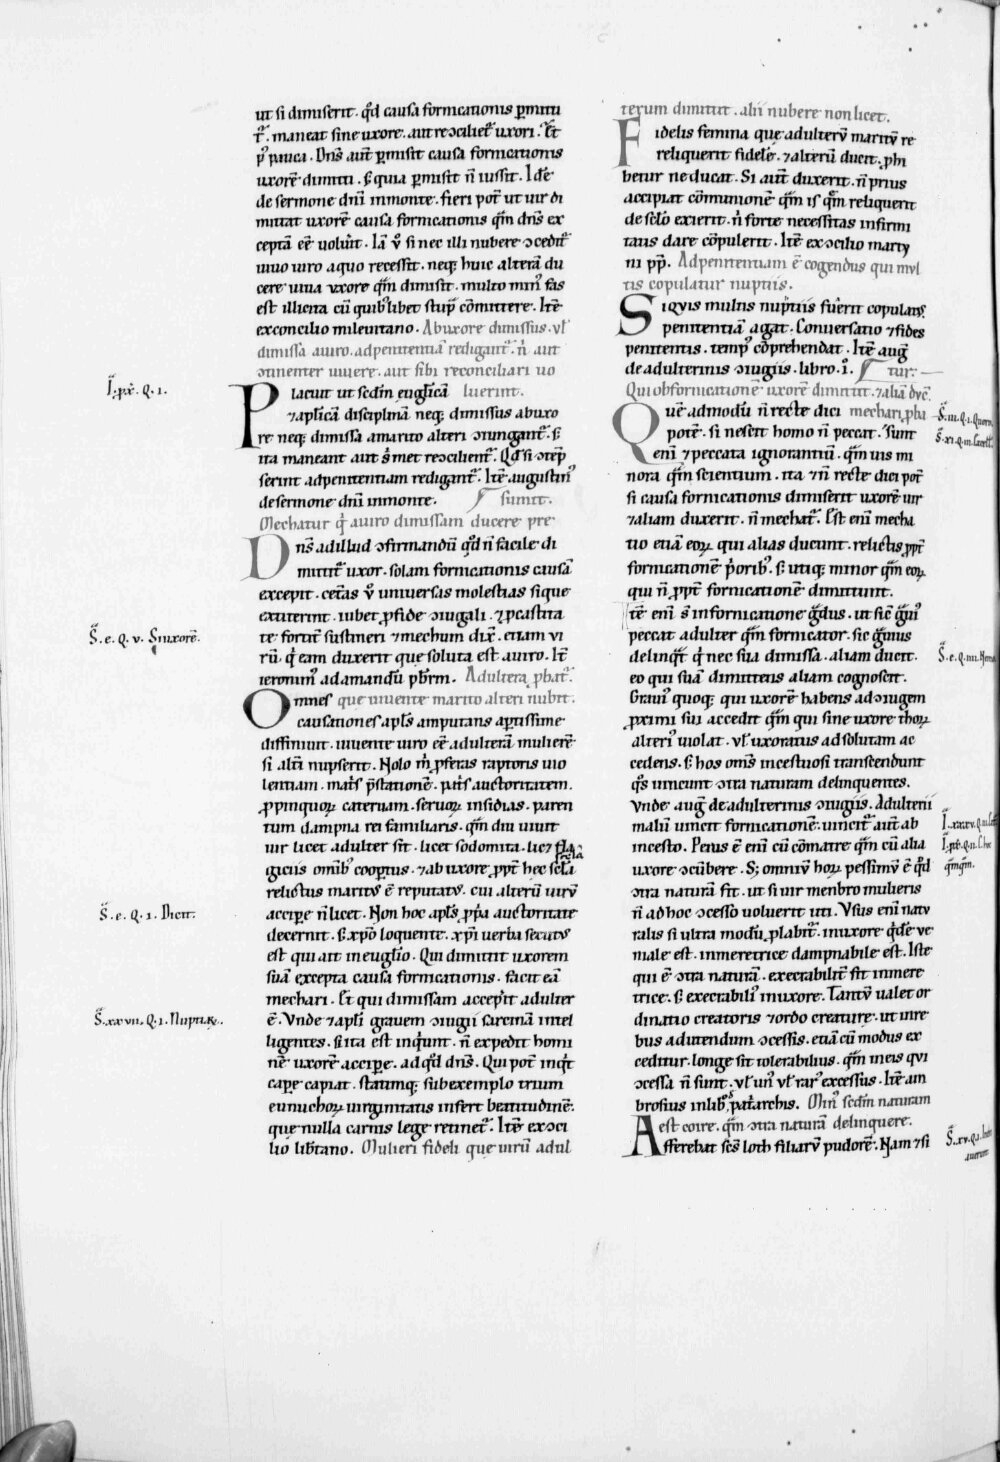 ut si dimiserit. qđ causa fornicationis p̄mitti
t᷑. maneat sine uxore. aut reↄcilief᷑ uxori. Et
p᷒ pauca. Dn̄s aut̄ p̄misit causa fornicationis
uxorē dimitti. s; quia p̄misit n̄ iussit. Idē
de sermone dn̄i inmonte. fieri pot̄ ut uir di
mittat uxorē causa fornicationis quā dn̄s ex
ceptā eē uoluit. Iā v̊ si nec illi nubere ↄcedit᷑
uiuo uiro aquo recessit. neq; huic alterā du
cere uiua uxore quā dimisit. multo min᷒ fas
est illicita cū quib᷒libet stup̄ cōmittere. Itē
exconcilio mileuitano. Abuxore dimissus. ul̄
dimissa auiro. adpenitentiā redigant᷑. n̄ aut
ↄtinenter uiuere. aut sibi reconciliari uo
Placuit ut scd̄m eu̅glicā luerint.
⁊aplicā disciplinā neq; dimissus abuxo
re neq; dimissa amarito alteri ↄiungant᷑. s;
ita maneant aut s̄met reↄcilient᷑. Qđ si ↄtēp
serint adpenitentiam redigant᷑. Itē augustin᷒
desermone dn̄i inmonte. sumit.
Mechatur q̇ auiro dimissam ducere pre
Dn̄s adillud ↄfirmandū qđ n̄ facile di
mittit᷑ uxor. solam fornicationis causā
excepit. cet̄as v̊ universas molestias sique
extiterint. iubet ꝓfide ↄiugali. ⁊ꝓcastita
te fortit̄ sustineri ⁊mechum dix̄. etiam vi
rū. q̇ eam duxerit que soluta est auiro. It̄
ieronim᷒ ad amandū pb̄rm. Adultera ꝓbat᷑.
Omnes que uiuente marito alteri nubit.
causationes apl̄s amputans apertissime
diffiniuit. uiuente uiro eē adulterā mulierē
si alt̄i nupserit. Nolo m̊ p̄feras raptoris uio
lentiam. mat̄s p̄stationē. pat̄s auctoritatem.
ꝓpinquoꝝ cateruam. servoꝝ insidias. paren
tum dampna rei familiaris. quā diu uiuit
uir licet adulter sit. licet sodomita. lic⁊ fla
giciis om̄ib᷒ coop̄tus. ⁊ab uxore ꝓpt̄ hec scl̄a
relictus marit᷒ ē reputat᷒. cui alterū uirū
accipe n̄ licet. Non hoc apl̄s ꝓp̄a auctoritate
decernit. s; xp̄o loquente. xp̄i uerba secut᷒
est qui ait in eu̅glio. Qui dimittit uxorem
suā excepta causa fornicationis. facit eā
mechari. Et qui dimissam accep̄it adulter
ē. Vnde ⁊apl̄i grauem ↄiugii sarcinā intel
ligentes. si ita est inq̇unt. n̄ expedit homi
nē uxorē accipe. ad qđ dn̄s. Qui pot̄ inq̇t
cape capiat. statimq; sub exemplo trium
eunuchoꝝ uirginitatis infert beatitudinē.
que nulla carnis lege retinet᷑. Itē exↄci
lio lib̄tano. Mulieri fideli que uirū adul
terum dimittit. alii nubere non licet.
Fidelis femina que adulterū maritū re
reliquerit fidelē. ⁊alterū ducit. ꝓhi
betur ne ducat. Si aut̄ duxerit. n̄ prius
accipiat cōmunionē quā is quē reliquerit
de sclo exierit. n̄ forte necessitas infirmi
tatis dare cōpulerit. Itē exↄcilio marty
ni pp̄. Adpenitentiam ē cogendus qui mul
tis copulatur nuptiis.
Siquis multis nuptiis fuerit copulat᷒
penitentiā agat. Conuersatio ⁊fides
penitentis. temp᷒ cōprehendat. Itē aug̅
de adulterinis ↄiugiis. libro. i. tur.
Qui ob fornicationē uxorē dimittit. ⁊aliā duc̄.
Quē admodū n̄ recte dici mechari ꝓba
potē. si nescit homo n̄ peccat. Sunt
eni̅ ⁊peccata ignorantiū. quā uis mi
nora quā scientium. ita ⁊n̄ recte dici pot̄
si causa fornicationis dimiserit uxorē uir
⁊aliam duxerit. n̄ mechat᷑. Est eni̅ mecha
tio etiā eoꝝ qui alias ducunt. relictis ꝓpt̄
fornicationē p̄orib᷒. s; utiq; minor quā eoꝝ
qui n̄ ꝓpt̄ fornicationē dimittunt.
Itē eni̅ s̄ in fornicatione gradus. ut sic̄ grauī᷒
peccat adulter quā fornicator. sic grauius
delinq̇t q̇ nec sua dimissa. aliam ducit.
eo qui suā dimittens aliam cognoscit.
Graui᷒ quoq; qui uxorē habens ad ↄiugem
ꝓximi sui accedit quā qui sine uxore thoꝝ
alteri᷒ uiolat. ul̄ uxoratus ad solutam ac
cedens. s; hos om̄s incestuosi transcendunt
q̊s uincunt ↄtra naturam delinquentes.
Vnde aug̅ de adulterinis ↄiugiis. Adulterii
malū uincit fornicationē. uincit᷑ aut̄ ab
incesto. Peius ē eni̅ cū cōmatre quā cū alia
uxore ↄcūbere. S; omniū hoꝝ pessimū ē qđ
ↄtra naturā fit. ut si uir menbro mulieris
n̄ ad hoc ↄcesso voluerit uti. Vsus eni̅ natu
ralis si ultra modū ꝓlabit᷑. in uxore q̇dē ve
niale est. in meretrice dampnabile est. Iste
qui ē ↄtra naturā. execrabilit̄ fit in mere
trice. s; execrabili᷒ in uxore. Tantū ualet or
dinatio creatoris ⁊ordo creature. ut in re
bus ad utendum ↄcessis. etiā cū modus ex
ceditur. longe sit tolerabilius. quā in eis qui
ↄcessa n̄ sunt. ul̄ un᷒ ul̄ rar᷒ excessus. Itē am
brosius in lib᷒ pat̄archis. Min᷒ scd̄m naturam
est coire. quā ↄtra naturā delinquere.
Afferebat sc̄s loth filiarū pudorē. Nam ⁊si
I. p̄x̄. Q. 1.
S̄. e. Q. v. Si uxorē.
S̄. e. Q. 1. Dicit.
S̄. xxvii. Q. 1. Nuptiaꝝ.
S̄. iii. Q. 1.
S̄. xi. Q. iii.
S̄. e. Q. iiii. Nemo
I. xxxv. Q. iii.
quāquā.
S̄. xv. Q. 1.